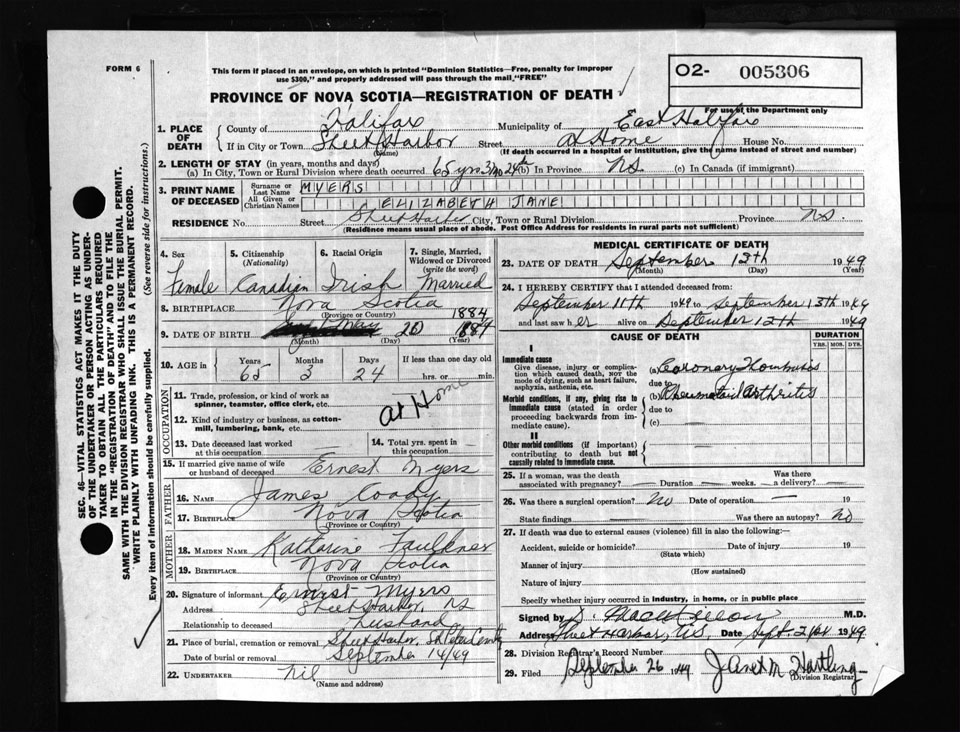 FORM 6
This form if placed in an envelope, on which is printed "Dominion Statistics—Free, penalty for improper
use $300," and properly addressed will pass through the mail, "FREE"
O2- 005306
For use of the Department only
PROVINCE OF NOVA SCOTIA—REGISTRATION OF DEATH
1. PLACE OF DEATH { County of Halifax Municipality of East Halifax
If in City or Town Sheet Harbor (Name) Street At Home House No.
(If death occurred in a hospital or institution, give the name instead of street and number)
2. LENGTH OF STAY (in years, months and days)
(a) In City, Town or Rural Division where death occurred 65 yrs 3 mo 24 (b) In Province NS (c) In Canada (if immigrant)
3. PRINT NAME OF DECEASED { Surname or Last Name MYERS
All Given or Christian Names ELIZABETH JANE
RESIDENCE No. Street Sheet Harbor City, Town or Rural Division Province NS.
(Residence means usual place of abode. Post Office Address for residents in rural parts not sufficient)
4. Sex 5. Citizenship (Nationality) 6. Racial Origin 7. Single, Married, Widowed or Divorced (write the word)
Female Canadian Irish Married
8. BIRTHPLACE Nova Scotia
(Province or Country)
1884
9. DATE OF BIRTH May 20 1889
(Month) (Day) (Year)
10. AGE in { Years Months Days If less than one day old
65 3 24 hrs. or min.
OCCUPATION
11. Trade, profession, or kind of work as spinner, teamster, office clerk, etc. At Home
12. Kind of industry or business, as cotton-mill, lumbering, bank, etc.
13. Date deceased last worked at this occupation 14. Total yrs. spent in this occupation
15. If married give name of wife or husband of deceased Ernest Myers
FATHER
16. NAME James Coady
17. BIRTHPLACE Nova Scotia
(Province or Country)
MOTHER
18. MAIDEN NAME Katharine Faulkner
19. BIRTHPLACE Nova Scotia
(Province or Country)
20. Signature of informant Ernest Myers
Address Sheet Harbor, NS
Relationship to deceased husband
21. Place of burial, cremation or removal Sheet Harbor, St Peters Cemty
Date of burial or removal September 14/49
22. UNDERTAKER Nil
(Name and address)
MEDICAL CERTIFICATE OF DEATH
23. DATE OF DEATH September 13th 1949
(Month) (Day) (Year)
24. I HEREBY CERTIFY that I attended deceased from:
September 11th 1949 to September 13th 1949
and last saw her alive on September 12th 1949
CAUSE OF DEATH DURATION
YRS. MOS. DYS.
I
Immediate cause
Give disease, injury or complication which caused death, NOT the mode of dying, such as heart failure, asphyxia, asthenia, etc. (a) Coronary Thrombosis
due to
Morbid conditions, if any, giving rise to immediate cause (stated in order proceeding backwards from immediate cause). (b) Rheumatoid Arthritis
due to
(c) —
II
Other morbid conditions (if important) contributing to death but not causally related to immediate cause.
25. If a woman, was the death associated with pregnancy? — Duration — weeks. Was there a delivery? —
26. Was there a surgical operation? No Date of operation — 19
State findings — Was there an autopsy? No
27. If death was due to external causes (violence) fill in also the following:—
Accident, suicide or homicide? Date of injury 19
(State which)
Manner of injury
(How sustained)
Nature of injury
Specify whether injury occurred in industry, in home, or in public place
Signed by M.D.
Address Sheet Harbor, N.S. Date Sept. 1949
28. Division Registrar's Record No.
29. Filed September 26 1949 Janet M. Hartling
Division Registrar
SEC. 46—VITAL STATISTICS ACT MAKES IT THE DUTY
OF THE UNDERTAKER OR PERSON ACTING AS UNDER-
TAKER TO OBTAIN ALL THE PARTICULARS REQUIRED
IN THE "REGISTRATION OF DEATH" AND TO FILE THE
SAME WITH THE DIVISION REGISTRAR WHO SHALL ISSUE THE BURIAL PERMIT.
WRITE PLAINLY WITH UNFADING INK. THIS IS A PERMANENT RECORD.
Every item of information should be carefully supplied. (See reverse side for instructions.)